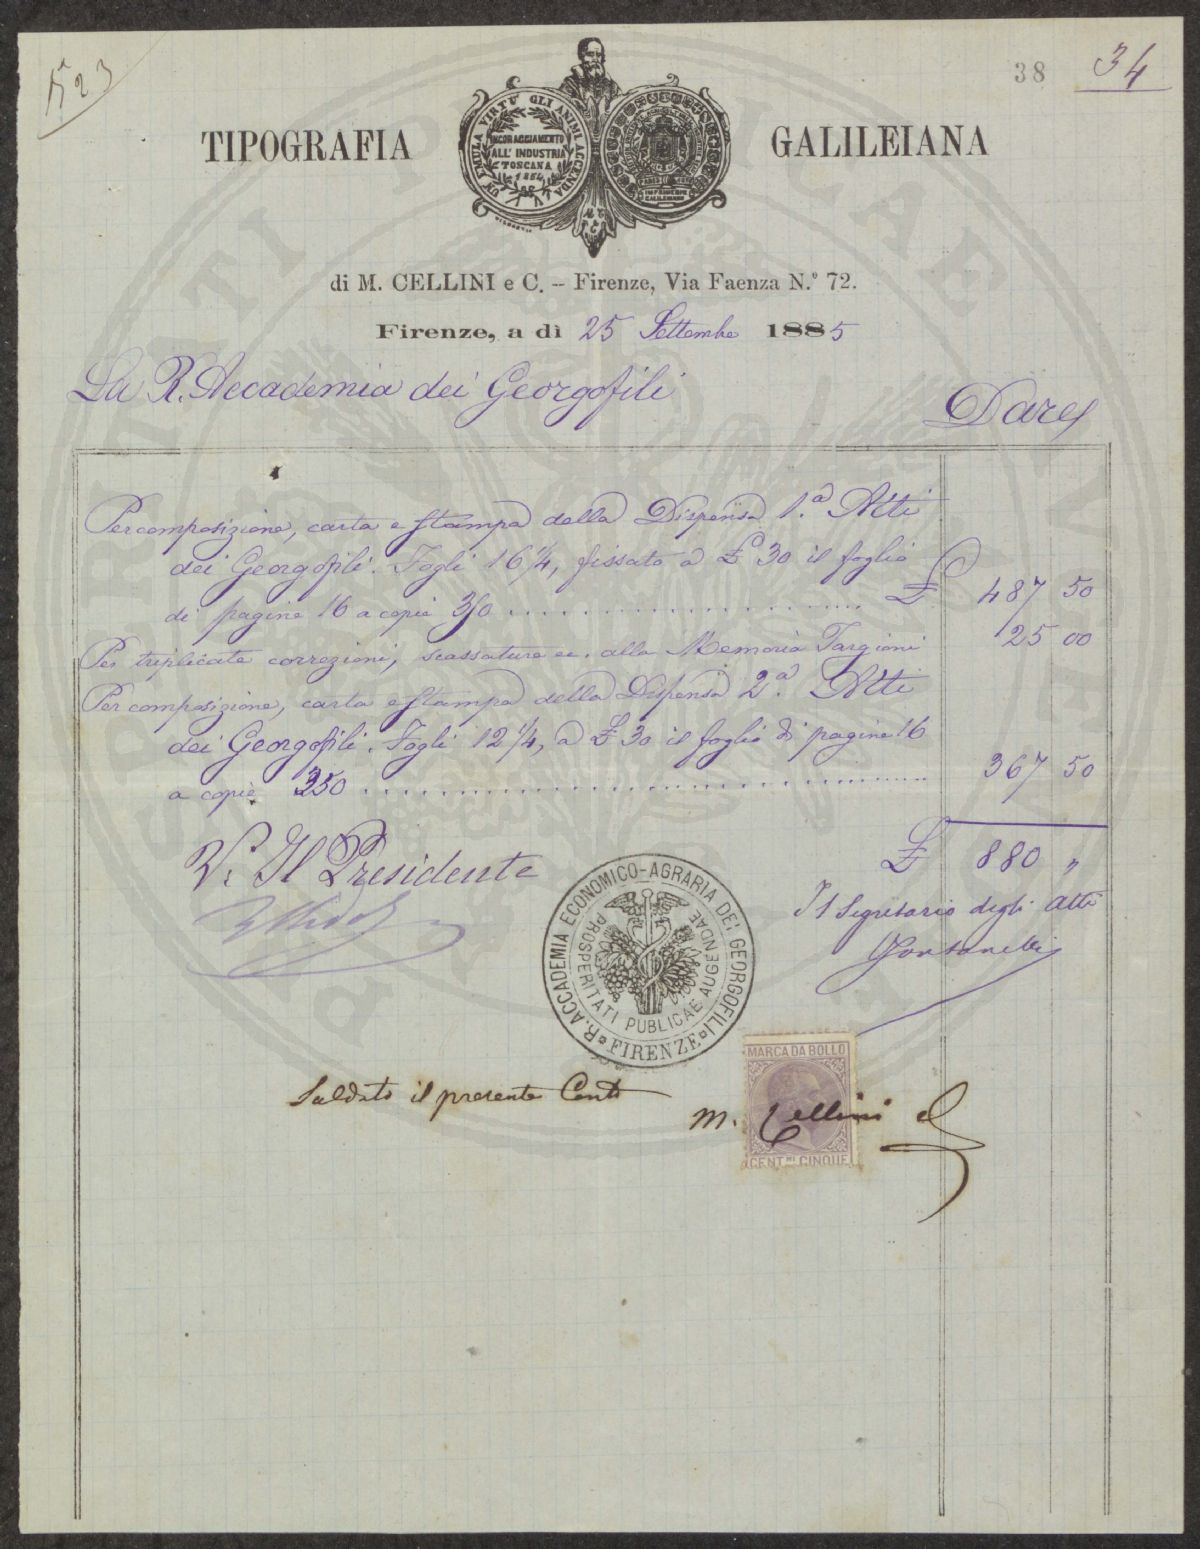 523
38
34
TIPOGRAFIA GALILEIANA
UN EMULA VIRTÙ GLI ANIMI ACCENDA
INCORAGGIAMENTO
ALL' INDUSTRIA
TOSCANA
1854
di M. CELLINI e C. – Firenze, Via Faenza N.° 72.
Firenze, a dì 25 Settembre 1885
La R. Accademia dei Georgofili
Dare
Per composizione, carta e stampa della Dispensa 1.ª Atti
dei Georgofili. Fogli 16 1/4, fissato a £ 30 il foglio
di pagine 16 a copie 350 .......... £ 487 50
Per triplicate correzioni, scassature ec. alla Memoria Targioni 25 00
Per composizione, carta e stampa della Dispensa 2.ª Atti
dei Georgofili. Fogli 12 1/4, a £ 30 il foglio di pagine 16
a copie 350 .......... 367 50
£ 880 "
V. Il Presidente
Il Segretario degli Atti
R. ACCADEMIA ECONOMICO-AGRARIA DEI GEORGOFILI
FIRENZE
PROSPERITATI PUBLICAE AUGENDAE
MARCA DA BOLLO
CENT.MI CINQUE
Saldato il presente Conto
M. Cellini e C
PROSPERITATI PUBLICAE AUGENDAE